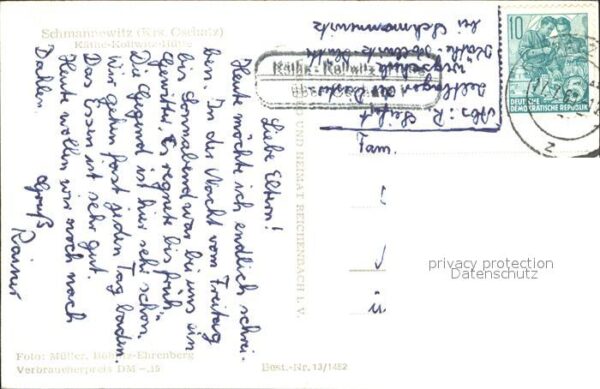 Schmannewitz (Krs. Oschatz)
Käthe-Kollwitz-Hütte
Liebe Eltern!
Heute möchte ich endlich schrei-
ben. In der Nacht vom Freitag
bis Sonnabend war bei uns ein
Gewitter. Es regnete bis früh.
Die Gegend ist hier sehr schön.
Wir gehen fast jeden Tag baden.
Das Essen ist sehr gut.
Heute wollen wir noch nach
Dahlen.
Gruß
Rainer
Foto: Müller, Ehrenberg
Verbraucherpreis DM -.15
Best.-Nr. 13/1482
UND HEIMAT REICHENBACH I. V.
Käthe-Kollwitz
über
Abs.: R.
Käthe-Kollwitz-Hütte
bei Schmannewitz
10
DEUTSCHE
DEMOKRATISCHE REPUBLIK
Fam.
privacy protection
Datenschutz